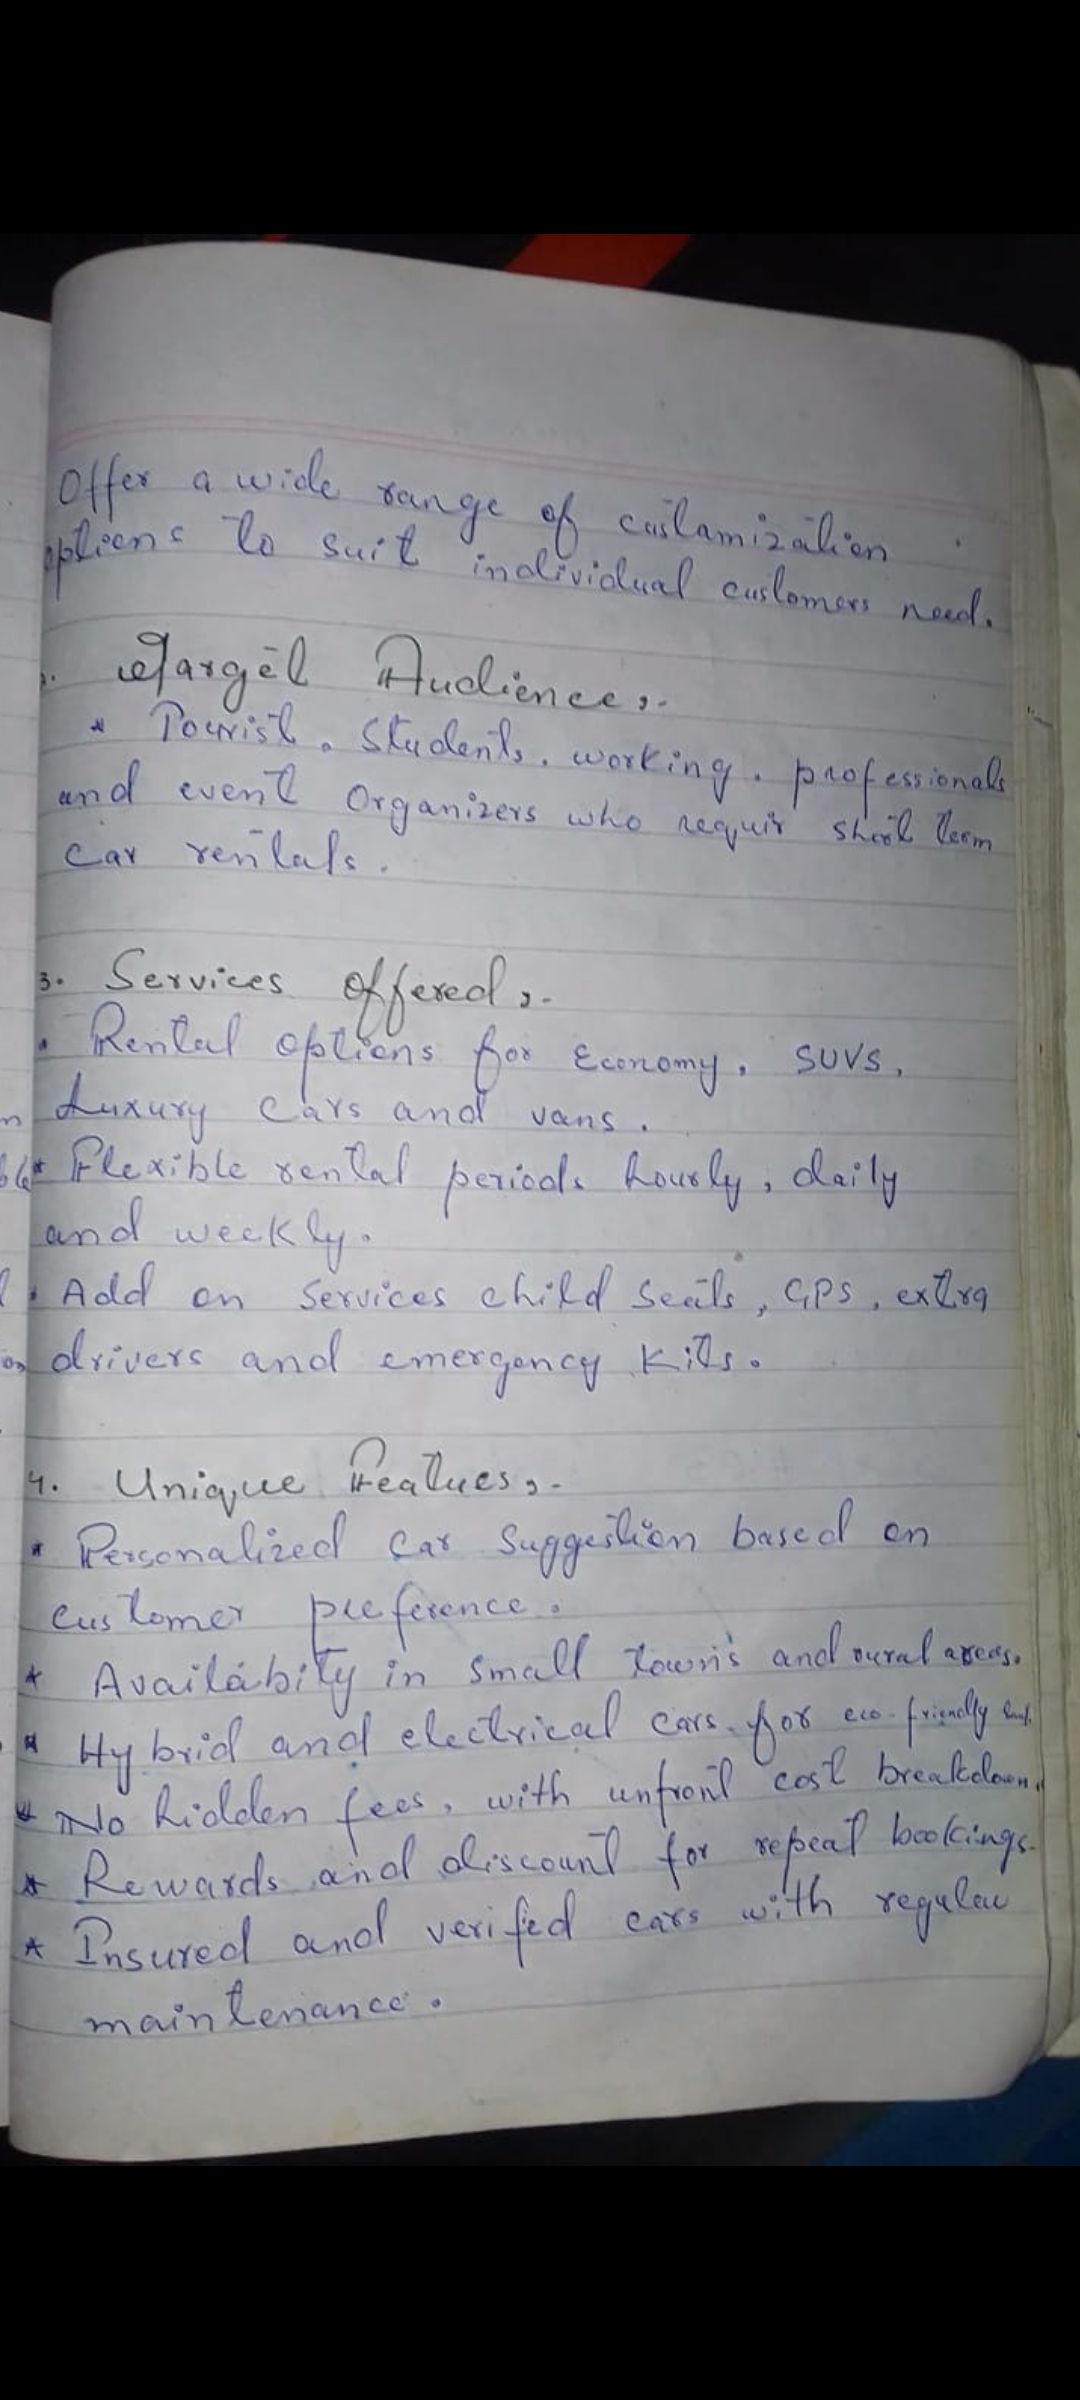 Offer a wide range of custamization
options to suit individual customers need.
Target Audience :-
* Tourist, Students, working, professionals
and event Organizers who requir short term
Car rentals.
3. Services offered :-
• Rental options for Economy, SUVS,
Luxury Cars and vans.
* Flexible rental periods hourly, daily
and weekly.
• Add on Services child Seats, GPS, extra
drivers and emergency Kits.
4. Unique Featues :-
* Personalized Car Suggestion based on
customer preference.
* Availabity in Small towns and rural areas.
* Hybrid and electrical cars for eco-friendly
* No hidden fees, with unfront cost breakdown.
* Rewards and discount for repeat bookings.
* Insured and verifed cars with regular
maintenance.